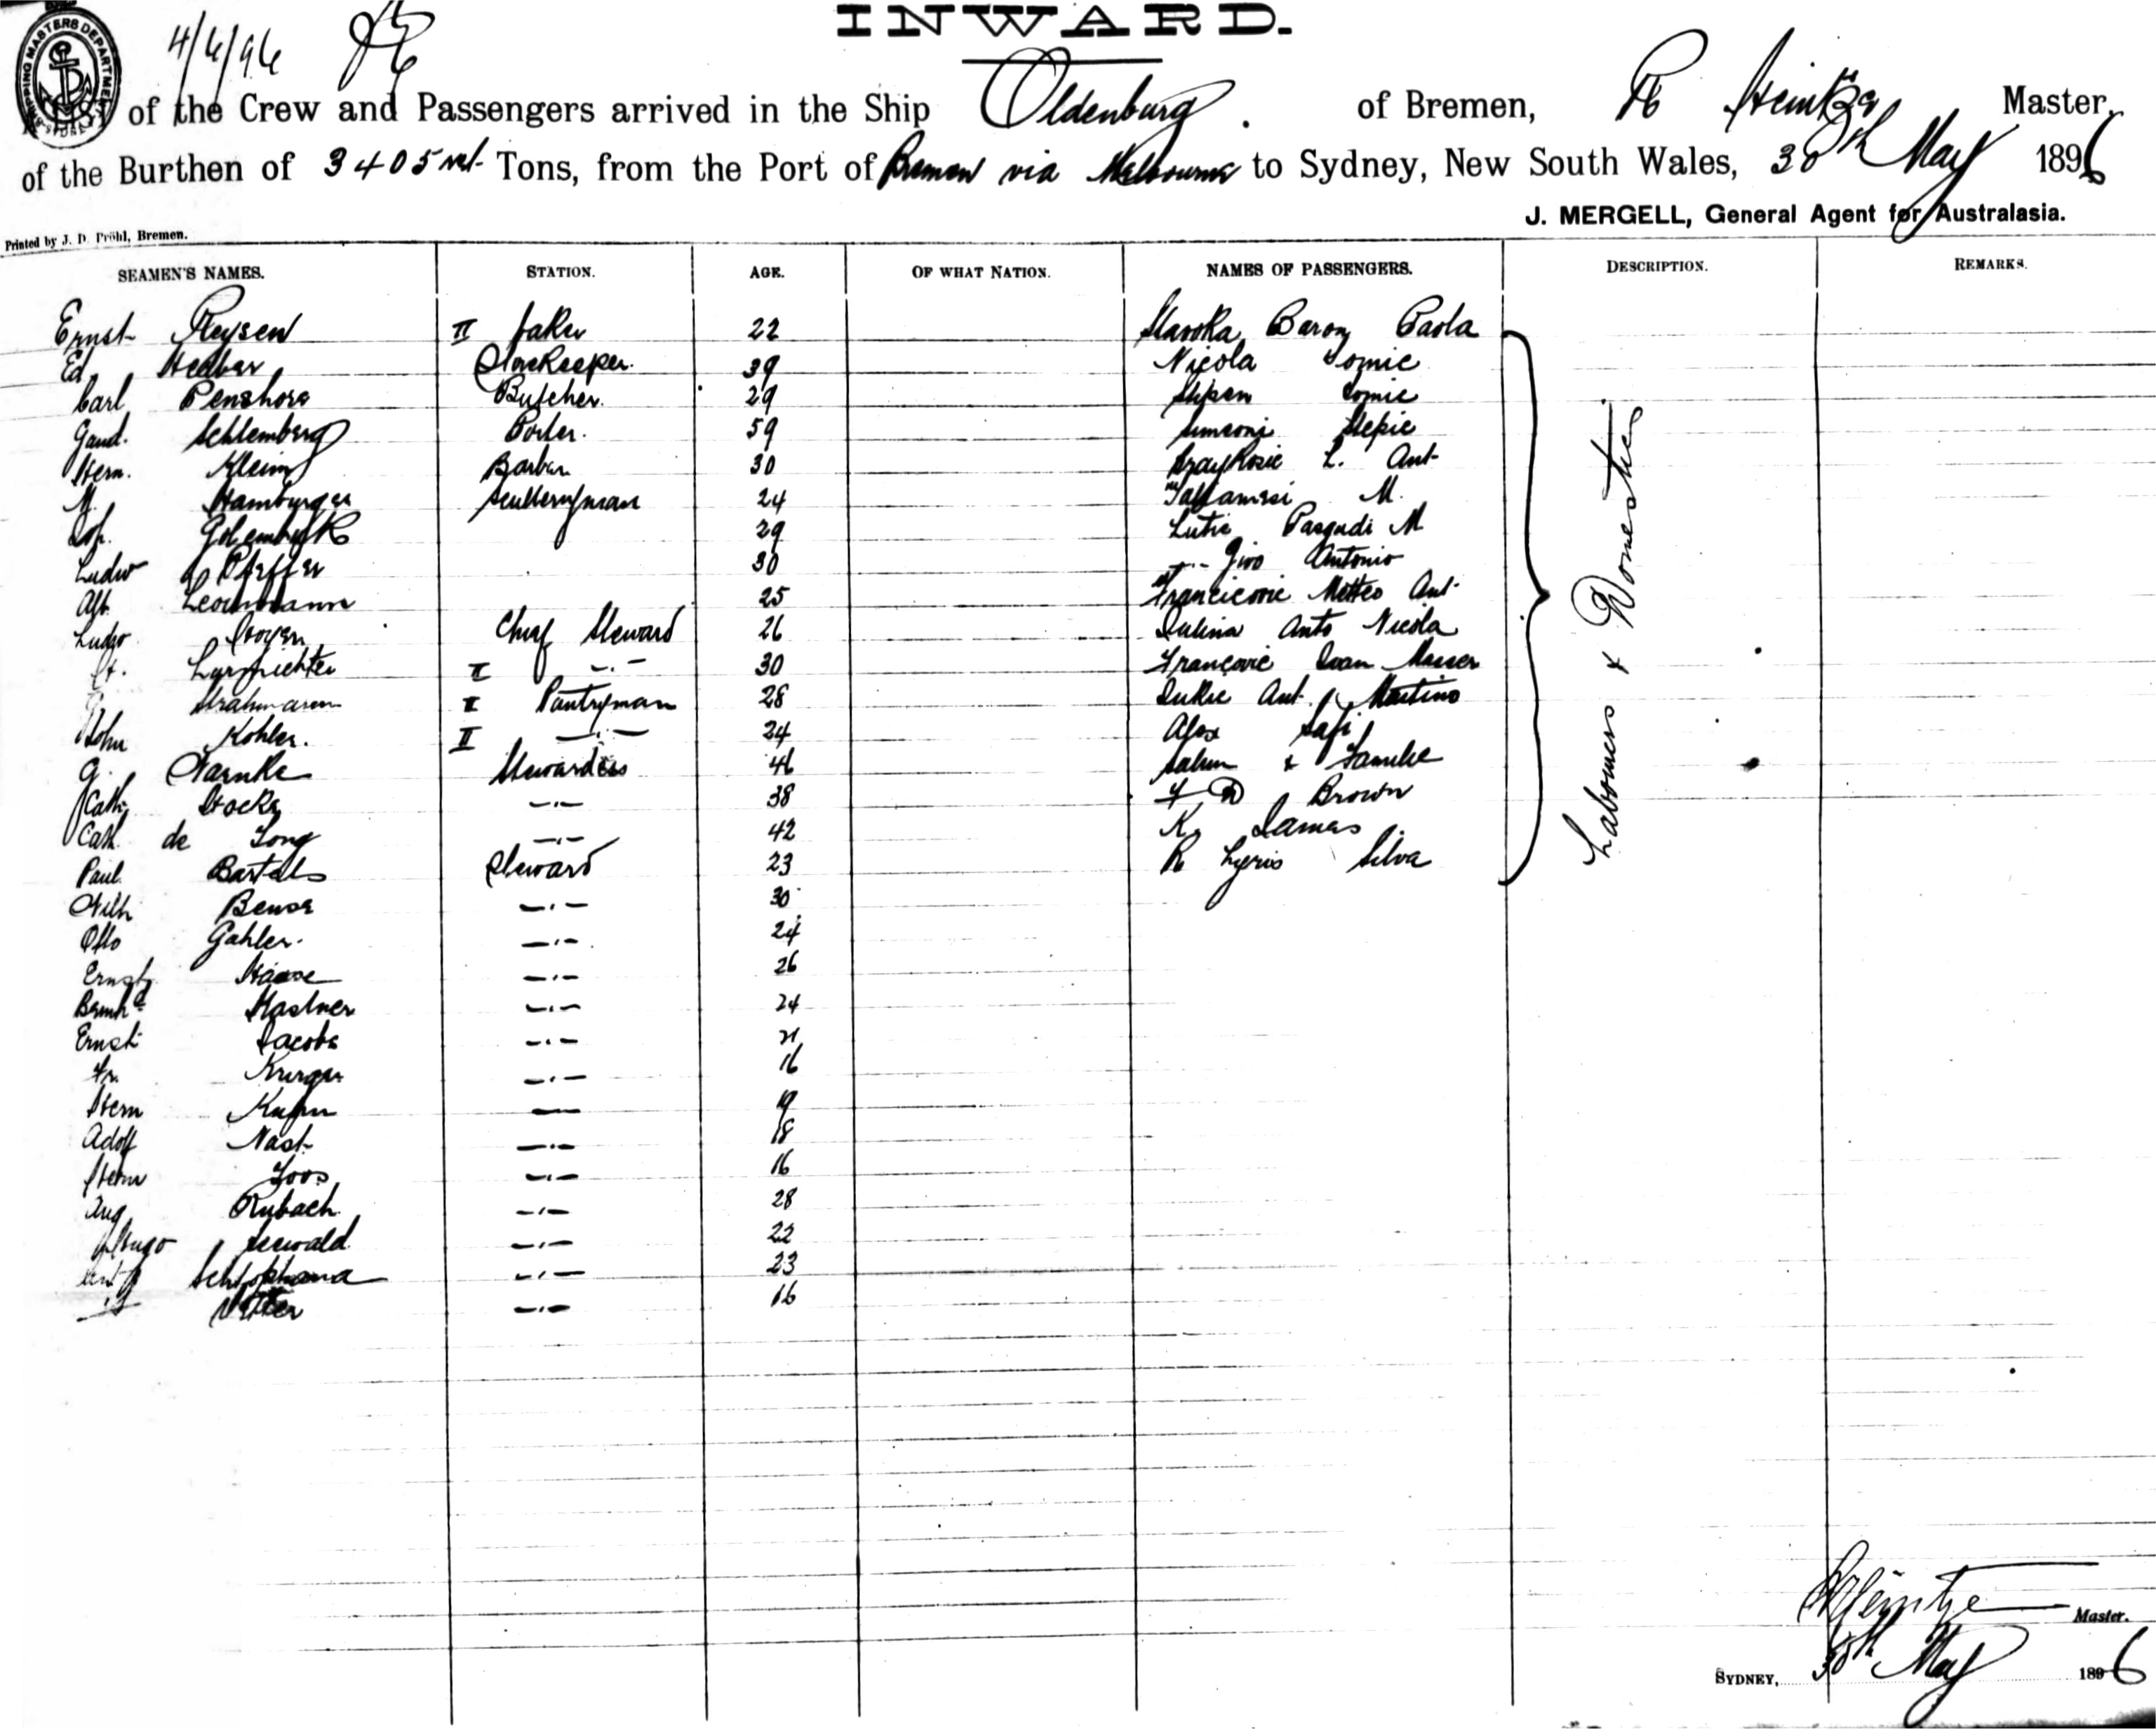 INWARD.
SHIPPING MASTERS DEPARTMENT SYDNEY
4/6/96
List of the Crew and Passengers arrived in the Ship Oldenburg. of Bremen, R Heintze Master,
of the Burthen of 3405 net Tons, from the Port of Bremen via Melbourne to Sydney, New South Wales, 30th May 1896
J. MERGELL, General Agent for Australasia.
Printed by J. D. Pröhl, Bremen.
SEAMEN'S NAMES. STATION. AGE. OF WHAT NATION. NAMES OF PASSENGERS. DESCRIPTION. REMARKS.
Ernst II baker 22 Baron Paola
Ed. Storekeeper. 39 Nicola Tomic
Carl Penshorn Butcher. 29 Stipan Tomic
Gand. Schlemberg Porter. 59 Simeoni Stepie
Herm. Klein Barber 30 L. Ant
M. Hamburger Sculleryman 24 M.
29 Lutic Pasquali M
Ludw Pfeffer 30 -.- Givo Antonio
Alb. 25 Francicovic Matteo Ant
Ludw. Chief Steward 26 Anto Nicola
II -.- 30 Francovic Ivan
I Pantryman 28 Ant. Martino
John Kohler. II -.- 24 Alex Safi
G. Warnke Stewardess 46 Salum & Familie
Cath. -.- 38 F D Brown
Cath. de Jong -.- 42 K. James
Paul Bartels Steward 23 R Silva
Wilh Bense -.- 30
Otto Gahler. -.- 24
Ernst Haase -.- 26
Bernhd Kastner -.- 24
Ernst Jacobs -.- 21
Fr. Kruger -.- 16
Herm Kuhn — 19
Adolf Nast -.- 18
Herm Joos -.- 16
Aug Rubach -.- 28
Hugo Seewald -.- 22
-.- 23
Vetter -.- 16
Labourers & Domestics
R Heintze Master.
SYDNEY, 30th May 1896